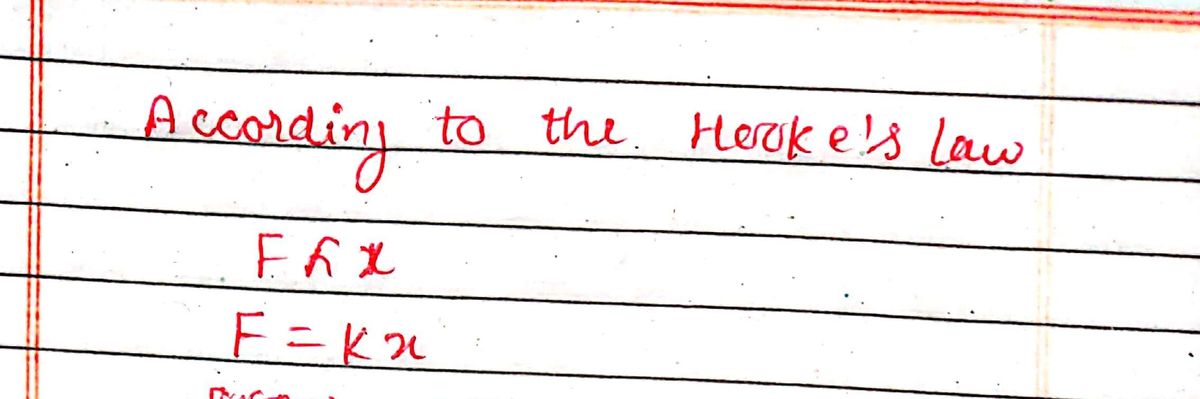 According to the. Hooke's law
F ∝ x
F = Kx